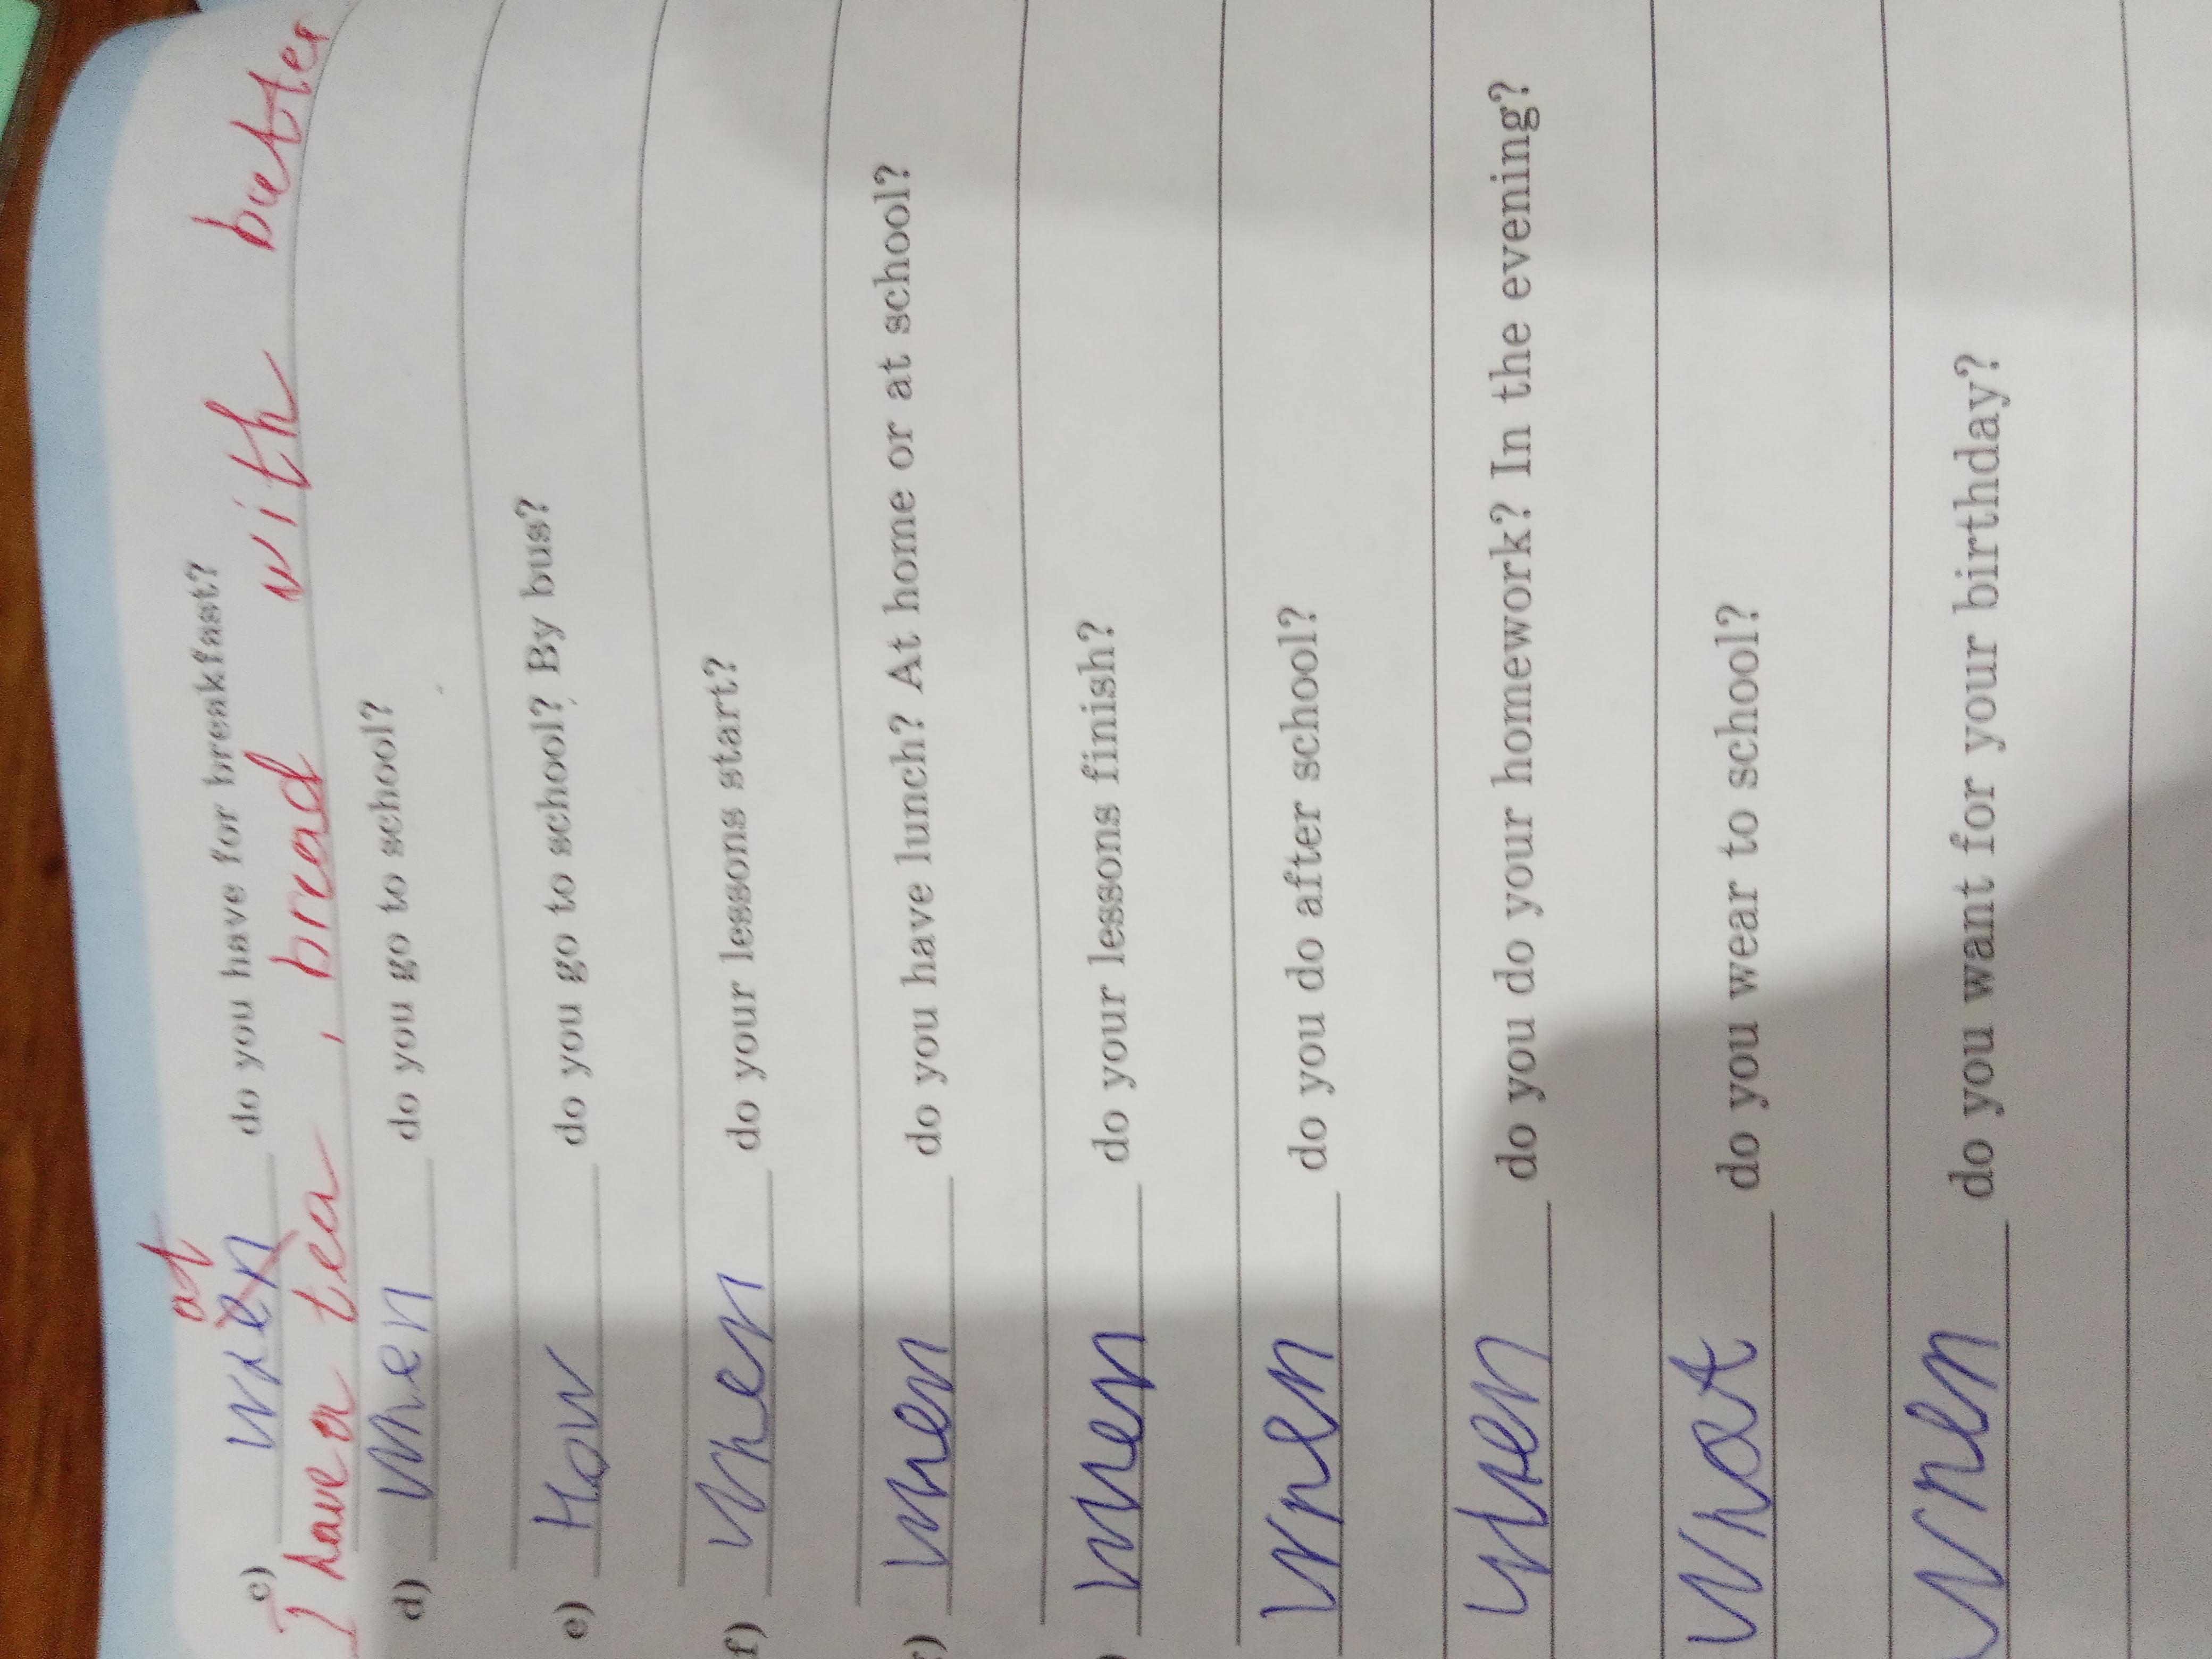 at
c) When do you have for breakfast?
I have a tea, bread with butter
d) When do you go to school?
e) How do you go to school? By bus?
f) When do your lessons start?
When do you have lunch? At home or at school?
When do your lessons finish?
When do you do after school?
When do you do your homework? In the evening?
What do you wear to school?
When do you want for your birthday?